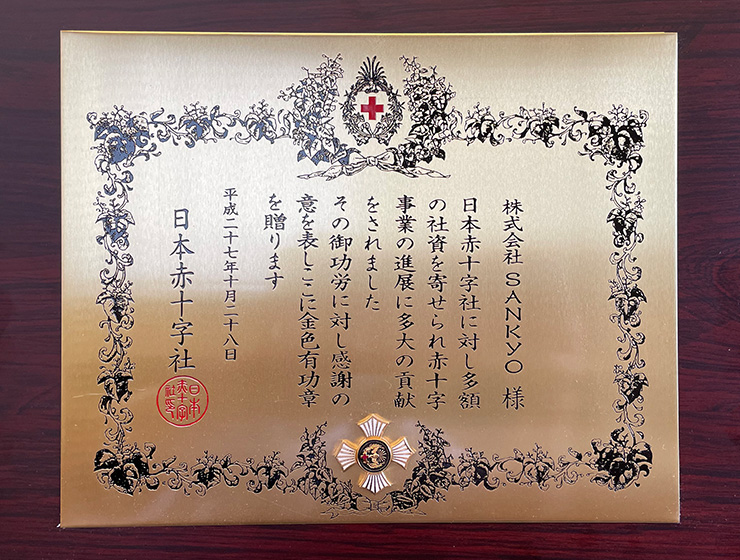 株式会社 SANKYO 様
日本赤十字社に対し多額
の社資を寄せられ赤十字
事業の進展に多大の貢献
をされました
その御功労に対し感謝の
意を表しここに金色有功章
を贈ります
平成二十七年十月二十八日
日本赤十字社
日本赤十字社印